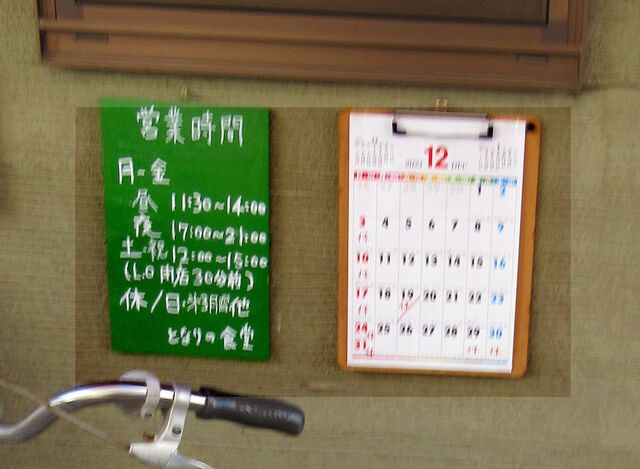 営業時間
月~金
昼 11:30~14:00
夜 17:00~21:00
土・祝 12:00~15:00
(L.O 閉店30分前)
休/日・
他
となりの食堂
12
1 2
3 4 5 6 7 8 9
休
10 11 12 13 14 15 16
休
17 18 19 20 21 22 23
休
24 25 26 27 28 29 30
休 休 休
31
休